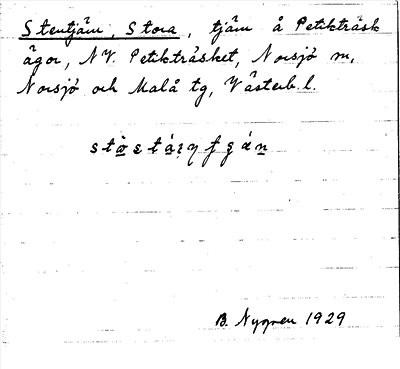 Stentjärn, Stora, tjärn å Petikträsk
ägor, NV. Petikträsket, Norsjö sn,
Norsjö och Malå tg, Västerb. l.
B. Nygren 1929